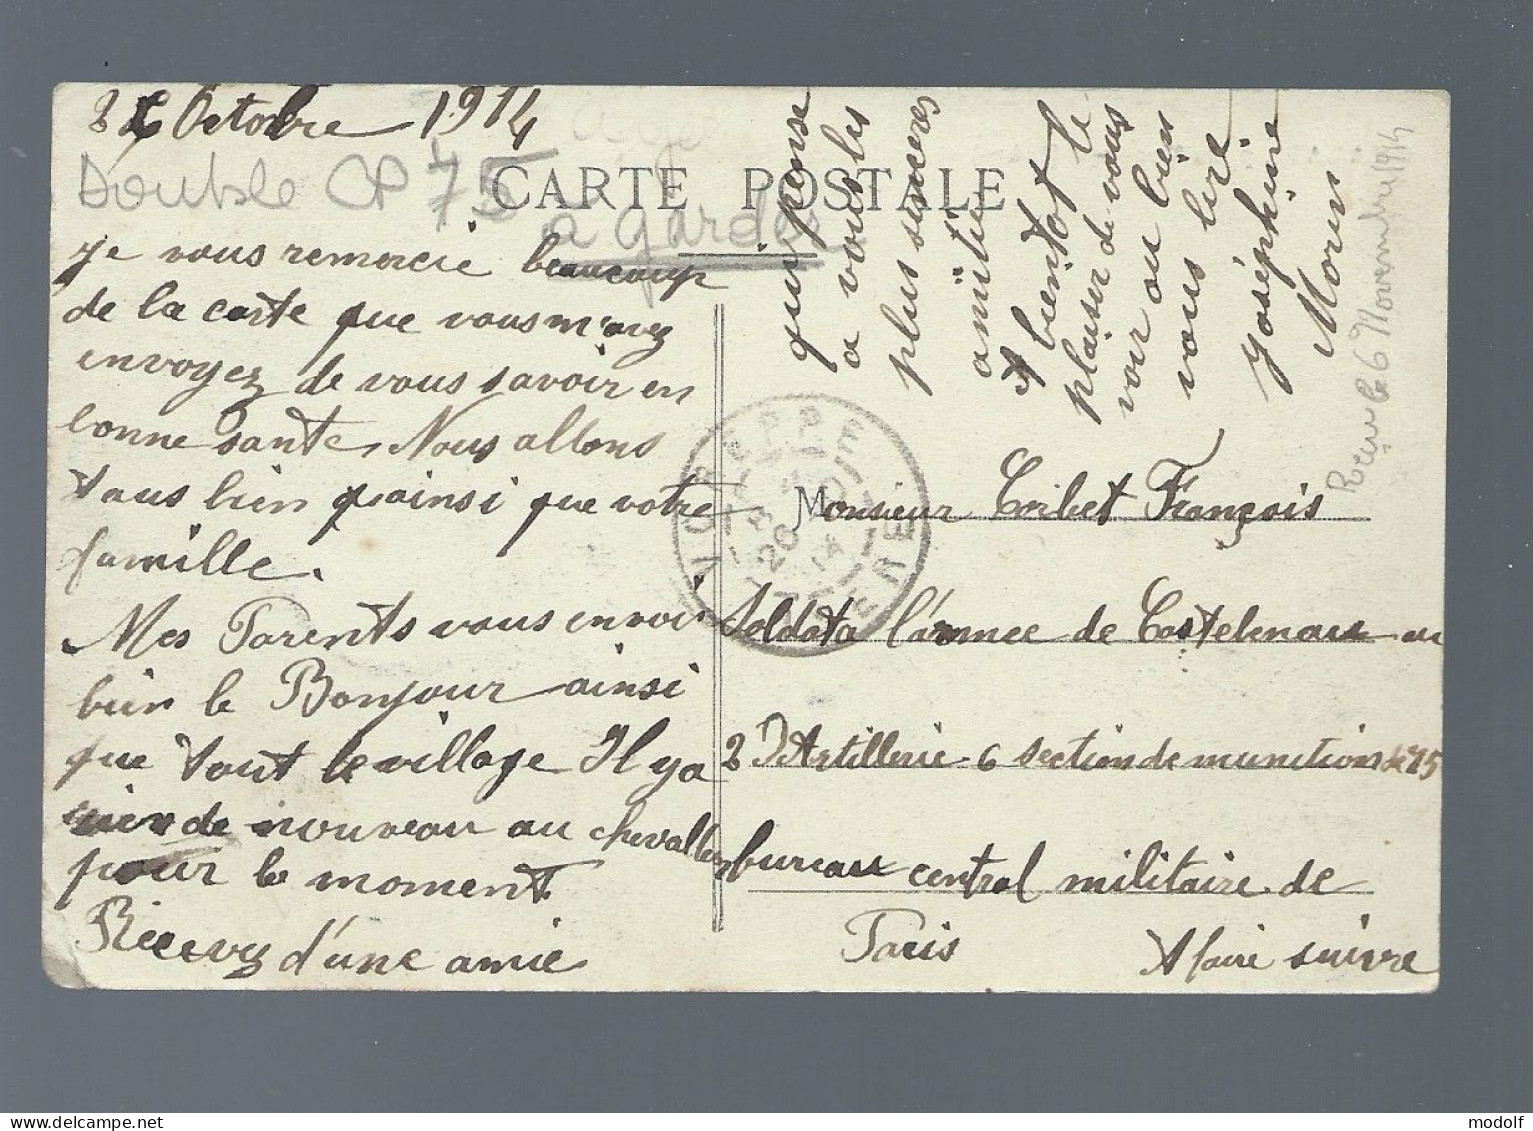 Octobre 1914
Double CP 75
à garder
CARTE POSTALE
je vous remercie beaucoup
de la carte que vous m'avez
envoyez de vous savoir en
bonne sante, Nous allons
tous bien ainsi que votre
famille.
Mes Parents vous envoi
bien le Bonjour ainsi
que tout le village Il y a
rien de nouveau au chevallon
pour le moment
Recevez d'une amie
qui pense
a vous les
plus sinceres
amitiés
A bientot le
plaisir de vous
voir ou bien
vous lire
Joséphine
Morin
Reçu le 6 Novembre 1914
VOREPPE
ISERE
Monsieur Corbet François
Soldat a l'armee de Castelnau au
2 D'Artillerie 6 section de munitions de 75
bureau central militaire de
Paris A faire suivre
modolf